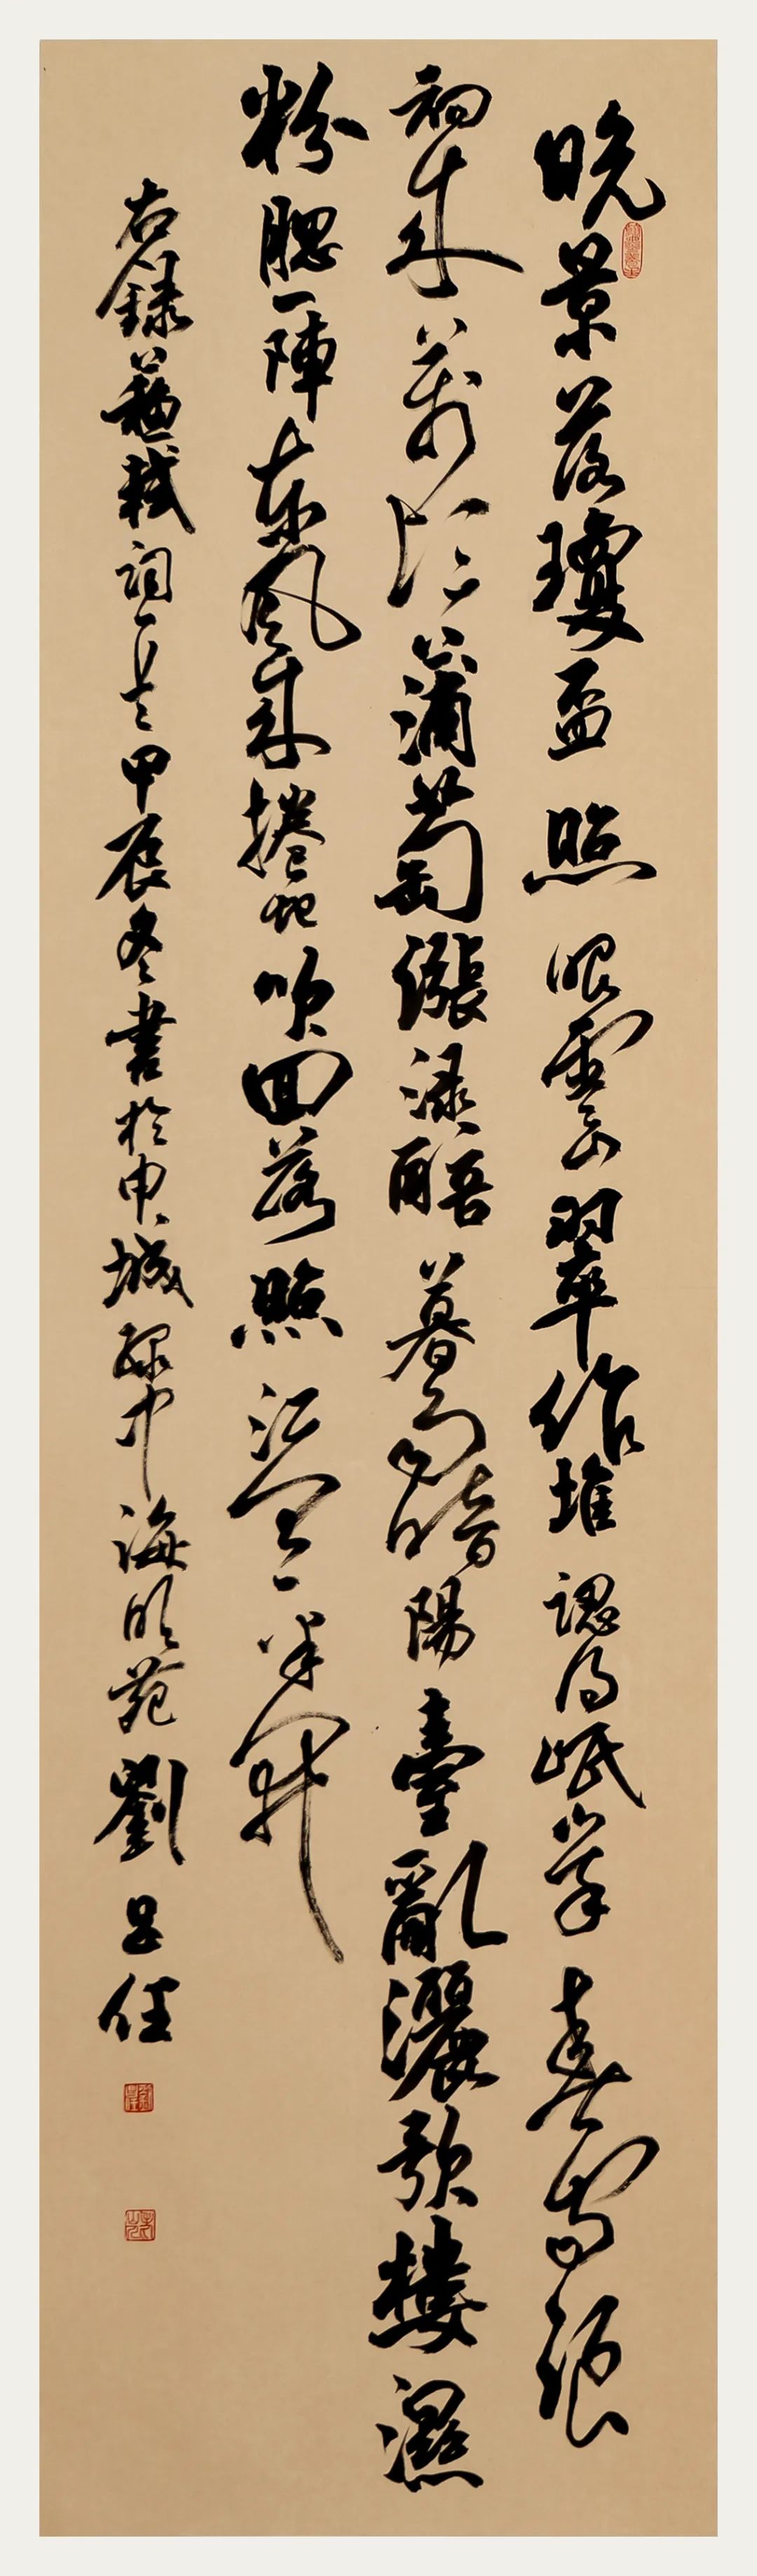 晚景落瓊盃照眼雲山翠作堆認得岷峩春雪浪
初來萬頃蒲萄漲淥醅暮雨暗陽臺亂灑歌樓濕
粉腮一陣東風來捲地吹回落照江天一半開
右錄蘇軾詞一首甲辰冬書於申城綠中海明苑劉佳